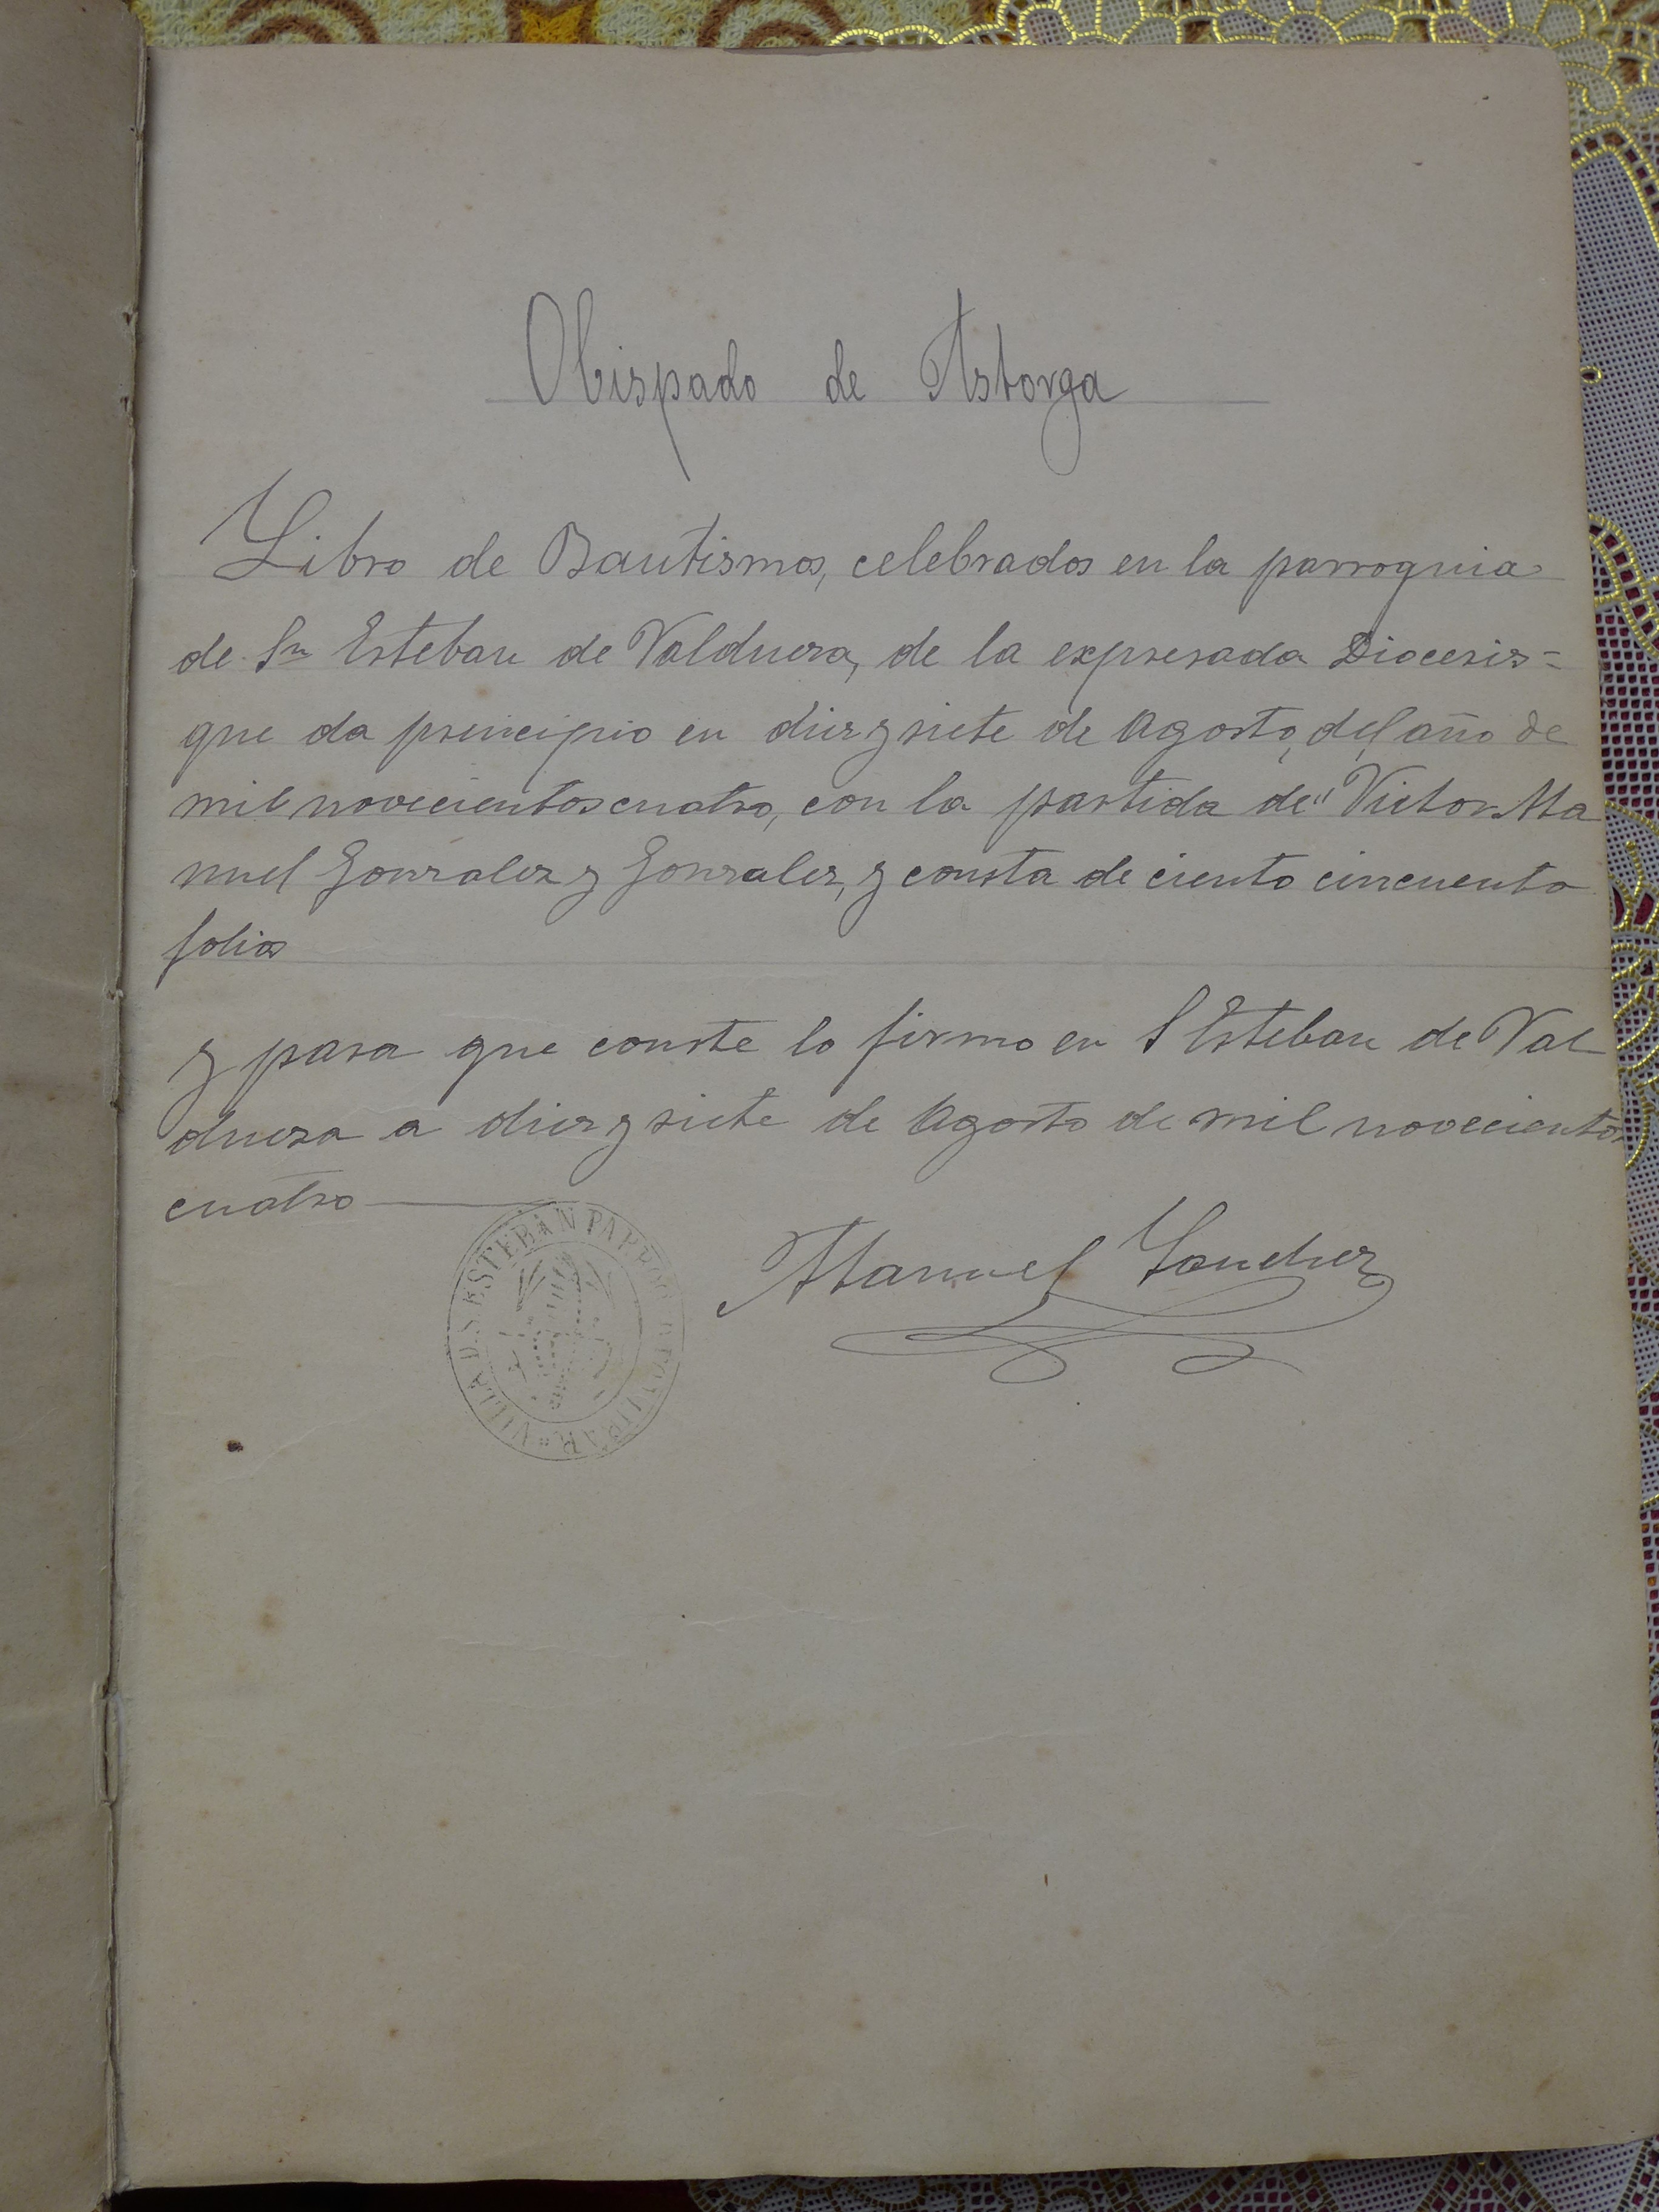 Obispado de Astorga
Libro de Bautismos, celebrados en la parroquia
de Sn Esteban de Valdueza, de la expresada Diocesis=
que da principio en diez y siete de Agosto, del año de
mil novecientos cuatro, con la partida de "Victor Ma
nuel Gonzalez y Gonzalez, y consta de ciento cincuenta
folios
y para que conste lo firmo en S Esteban de Val
dueza a diez y siete de Agosto de mil novecientos
cuatro
Manuel Sanchez
VILLA D.S. ESTEBAN